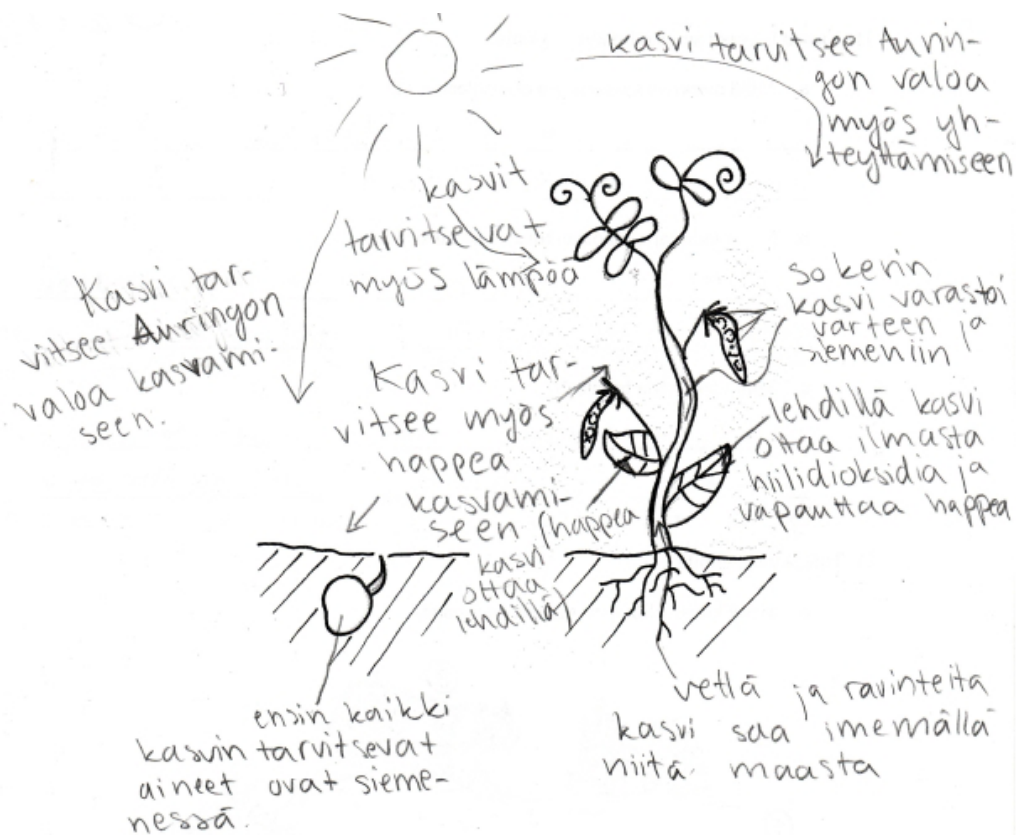 kasvi tarvitsee Aurin-
gon valoa
myös yh-
teyttämiseen
kasvit
tarvitsevat
myös lämpöä
Kasvi tar-
vitsee Auringon
valoa kasvami-
seen.
sokerin
kasvi varastoi
varteen ja
siemeniin
Kasvi tar-
vitsee myös
happea
kasvami-
seen (happea
kasvi
ottaa
lehdillä)
lehdillä kasvi
ottaa ilmasta
hiilidioksidia ja
vapauttaa happea
ensin kaikki
kasvin tarvitsevat
aineet ovat sieme-
nessä.
vettä ja ravinteita
kasvi saa imemällä
niitä maasta